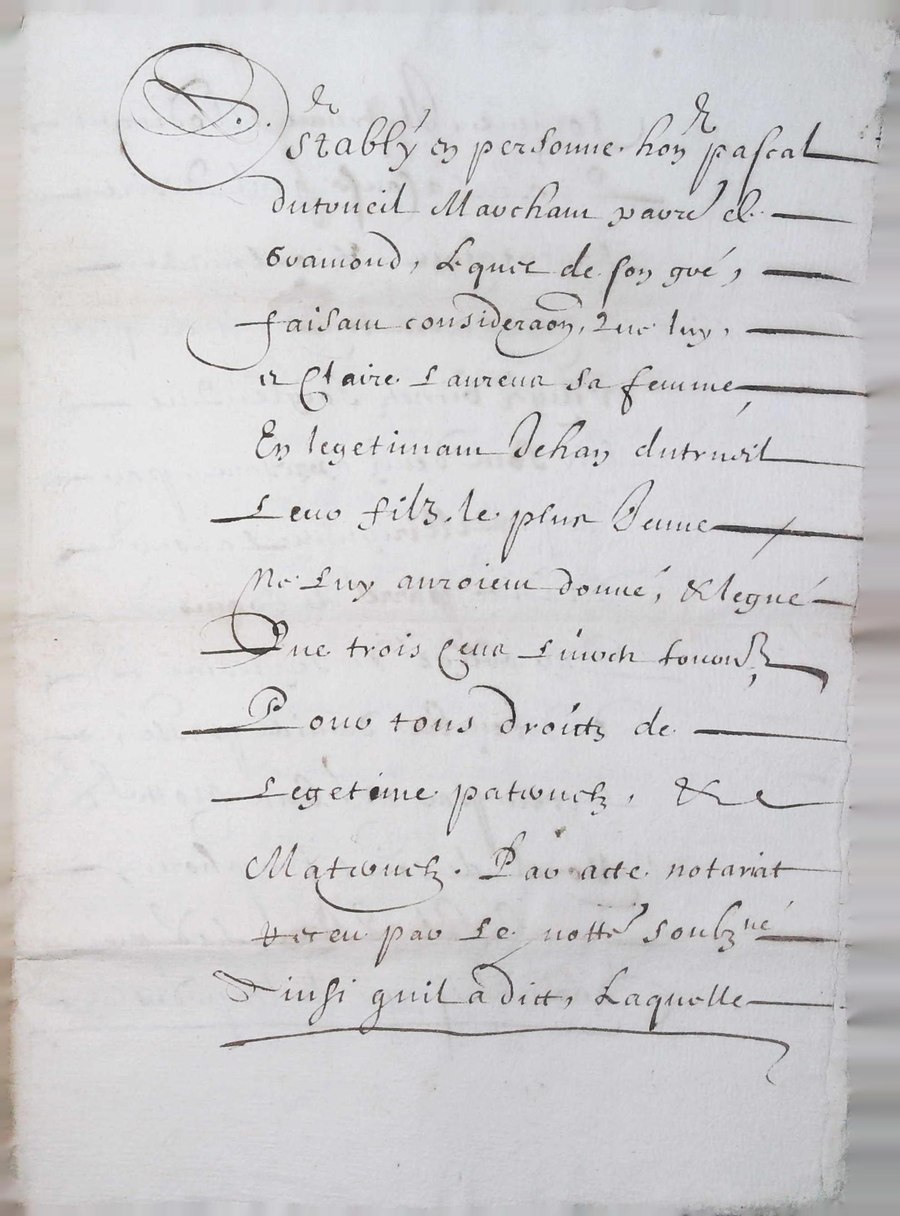 Estably en personne hon^r pascal
dutrueil Marchant parre de
Gramond, Lequel de son gré,
faisant consideraon, Que luy,
et Claire Laurens sa femme
En legetimant Jehan dutrueil
Leur filz le plus Jeune
Ne Luy auroient donné, & legué
Que trois Cens Livres tournz
Pour tous droictz de
Legetime patrnelz, &
Matrnelz. Par acte notariat
receu par Le notte soubzné
Ainsi quil a dict, Laquelle